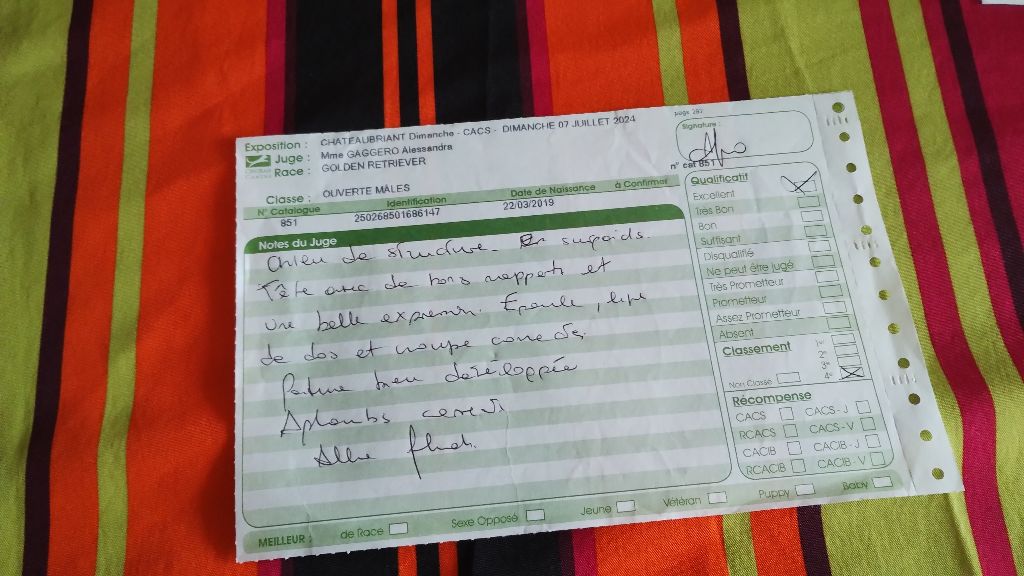 page 287
Exposition : CHATEAUBRIANT Dimanche - CACS - DIMANCHE 07 JUILLET 2024
Juge : Mme GAGGERO Alessandra
Race : GOLDEN RETRIEVER
Signature :
n° cat 851
Classe : OUVERTE MÂLES
N° Catalogue Identification Date de Naissance à Confirmer
851 250268501686147 22/03/2019
Notes du Juge
Chien de structure. En surpoids.
Tête avec de bons rapports et
une belle expression. Epaule, ligne
de dos et croupe correctes,
Poitrine bien développée
Aplombs corrects
Allure
Qualificatif
Excellent
Très Bon
Bon
Suffisant
Disqualifié
Ne peut être jugé
Très Prometteur
Prometteur
Assez Prometteur
Absent
Classement
1er
2e
3e
4e
Non Classé
Récompense
CACS CACS - J
RCACS CACS - V
CACIB CACIB - J
RCACIB CACIB - V
MEILLEUR : de Race Sexe Opposé Jeune Vétéran Puppy Baby